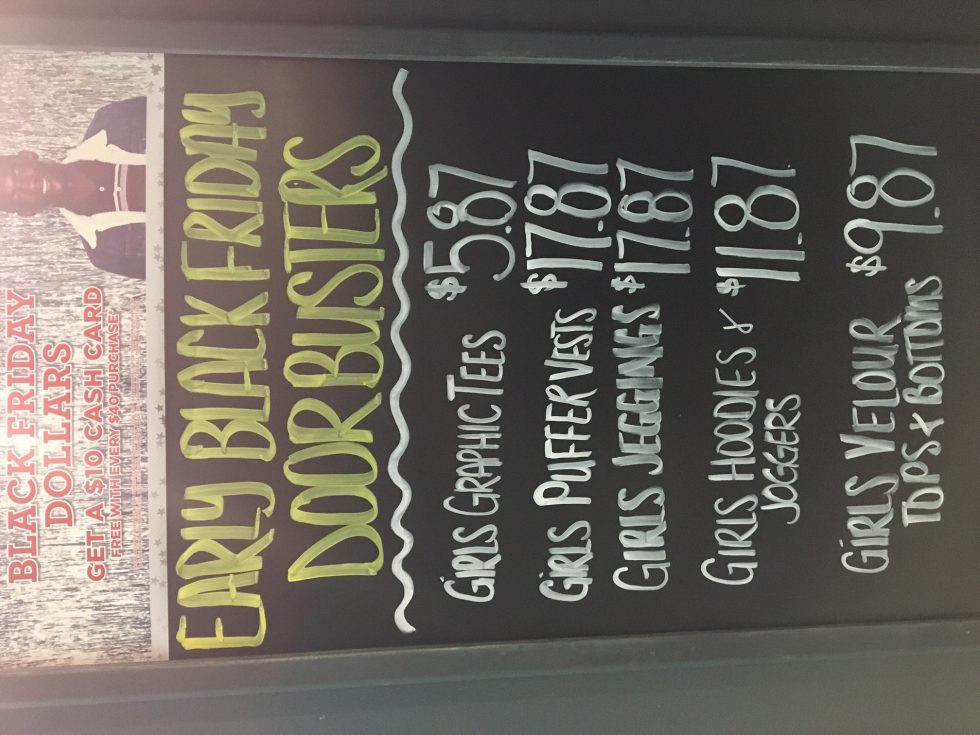 BLACK FRIDAY
DOLLARS
GET A $10 CASH CARD
FREE WITH EVERY $40 PURCHASE
EARLY BLACK FRIDAY
DOOR BUSTERS
GIRLS GRAPHIC TEES $5.87
GIRLS PUFFER VESTS $17.87
GIRLS JEGGINGS $17.87
GIRLS HOODIES & $11.87
JOGGERS
GIRLS VELOUR $9.87
TOPS & BOTTOMS